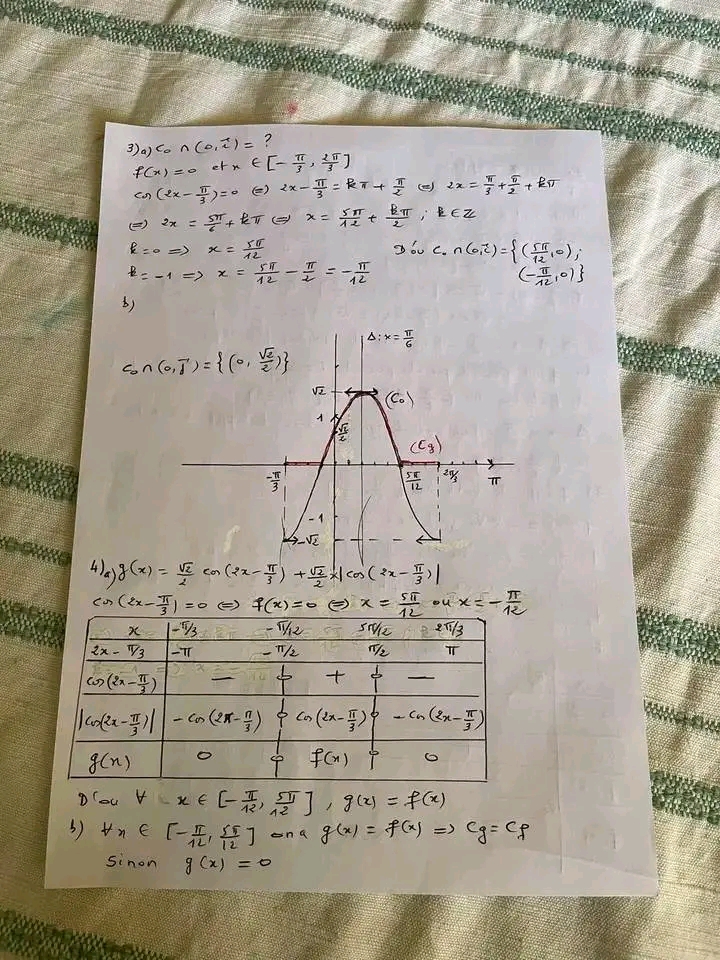 3) a) C₀ ∩ (0, i⃗) = ?
f(x) = 0 et x ∈ [-π/3, 2π/3]
cos(2x - π/3) = 0 ⇔ 2x - π/3 = kπ + π/2 ⇔ 2x = π/3 + π/2 + kπ
⇔ 2x = 5π/6 + kπ ⇔ x = 5π/12 + kπ/2 ; k ∈ ℤ
k = 0 ⇒ x = 5π/12 D'où C₀ ∩ (0, i⃗) = {(5π/12, 0) ;
k = -1 ⇒ x = 5π/12 - π/2 = -π/12 (-π/12, 0)}
b)
Δ : x = π/6
C₀ ∩ (0, j⃗) = {(0, √2/2)}
√2 (C₀)
1
√2/2
(Cg)
-π/3 5π/12 2π/3 π
-1
-√2
4) a) g(x) = √2/2 cos(2x - π/3) + √2/2 × |cos(2x - π/3)|
cos(2x - π/3) = 0 ⇔ f(x) = 0 ⇔ x = 5π/12 ou x = -π/12
x -π/3 -π/12 5π/12 2π/3
2x - π/3 -π -π/2 π/2 π
cos(2x - π/3) — 0 + 0 —
|cos(2x - π/3)| - cos(2x - π/3) 0 cos(2x - π/3) 0 - cos(2x - π/3)
g(x) 0 0 f(x) 0 0
D'où ∀ x ∈ [-π/12, 5π/12], g(x) = f(x)
b) ∀x ∈ [-π/12, 5π/12] on a g(x) = f(x) ⇒ Cg = Cf
Sinon g(x) = 0